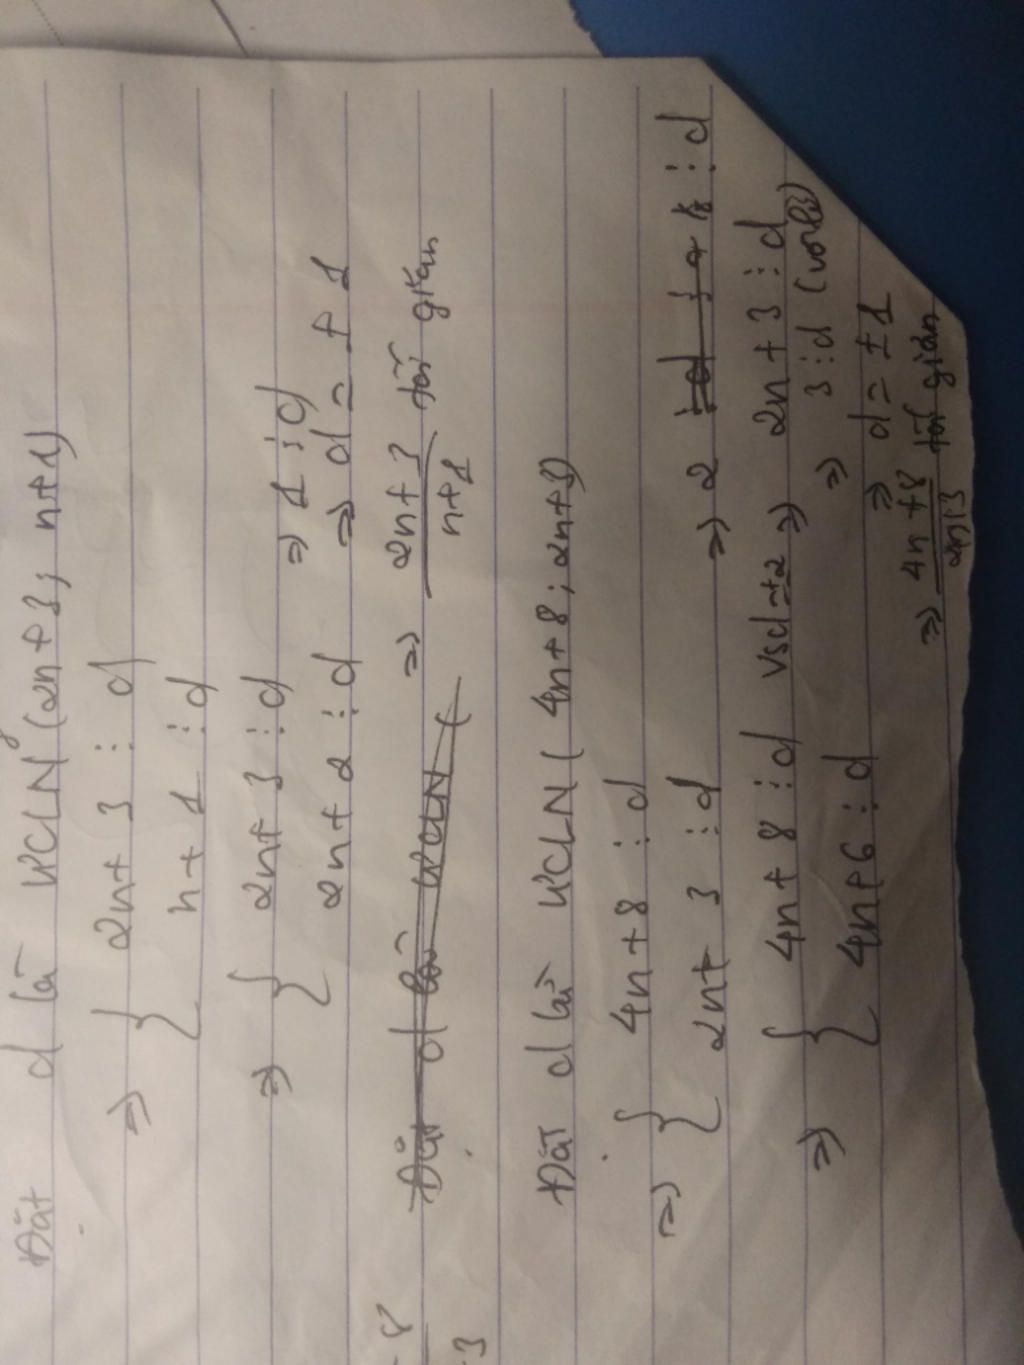 Đặt d là ƯCLN(2n+3; n+1)
=> { 2n+3 ⋮ d
n+1 ⋮ d
=> { 2n+3 ⋮ d => 1 ⋮ d
2n+2 ⋮ d => d = ±1
Đặt d là ƯCLN ( => 2n+3 / n+1 tối giản
Đặt d là ƯCLN( 4n+8; 2n+3)
=> { 4n+8 ⋮ d
2n+3 ⋮ d => 2 ⋮ d
=> { 4n+8 ⋮ d => 2n+3 ⋮ d
4n+6 ⋮ d => 3 ⋮ d
=> d = ±1
=> 4n+8 / 2n+3 tối giản